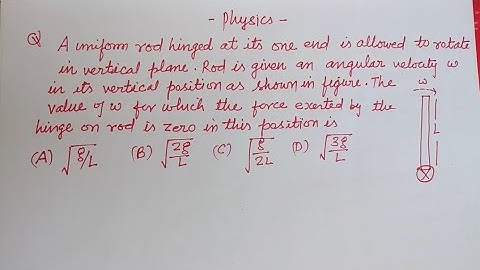 - Physics -
Q A uniform rod hinged at its one end is allowed to rotate
in vertical plane. Rod is given an angular velocity ω
in its vertical position as shown in figure. The
value of ω for which the force exerted by the
hinge on rod is zero in this position is
(A) √g/L (B) √2g/L (C) √g/2L (D) √3g/L
ω
L